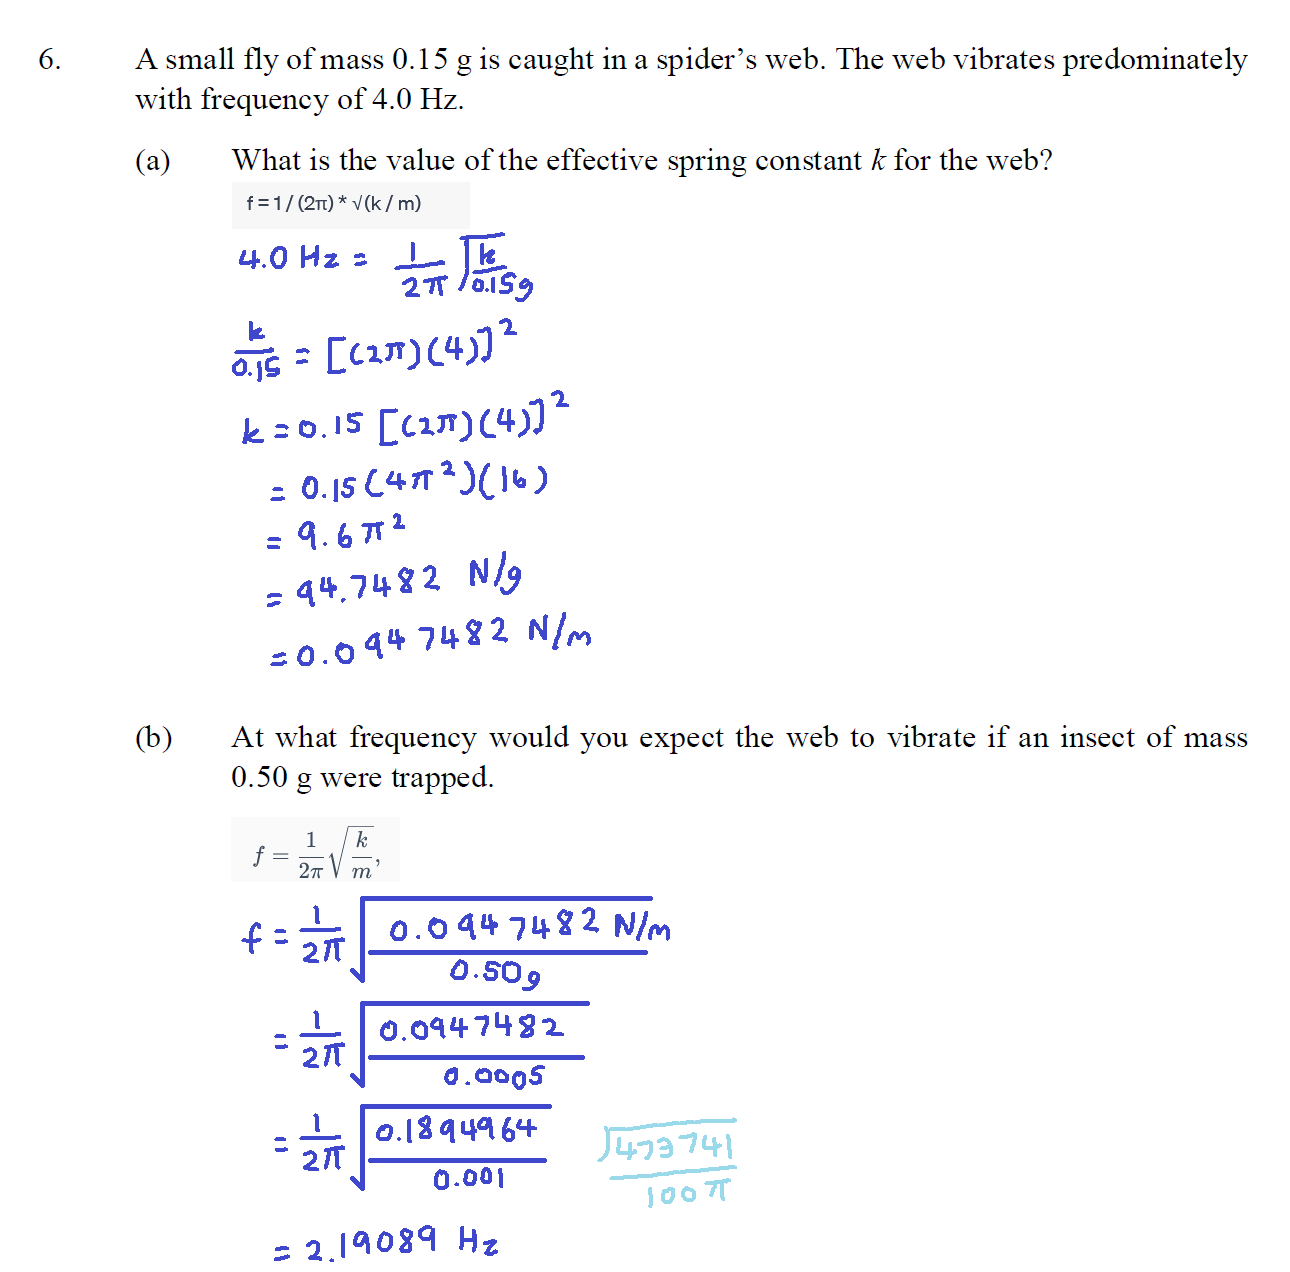 6. A small fly of mass 0.15 g is caught in a spider’s web. The web vibrates predominately
with frequency of 4.0 Hz.
(a) What is the value of the effective spring constant k for the web?
f = 1 / (2π) * √(k / m)
4.0 Hz = 1/2π √(k/0.15g)
k/0.15 = [(2π)(4)]²
k = 0.15 [(2π)(4)]²
= 0.15 (4π²)(16)
= 9.6π²
= 94.7482 N/g
= 0.0947482 N/m
(b) At what frequency would you expect the web to vibrate if an insect of mass
0.50 g were trapped.
f = 1/2π √(k/m),
f = 1/2π √(0.0947482 N/m / 0.50g)
= 1/2π √(0.0947482 / 0.0005)
= 1/2π √(0.1894964 / 0.001) √473741 / 100π
= 2.19089 Hz